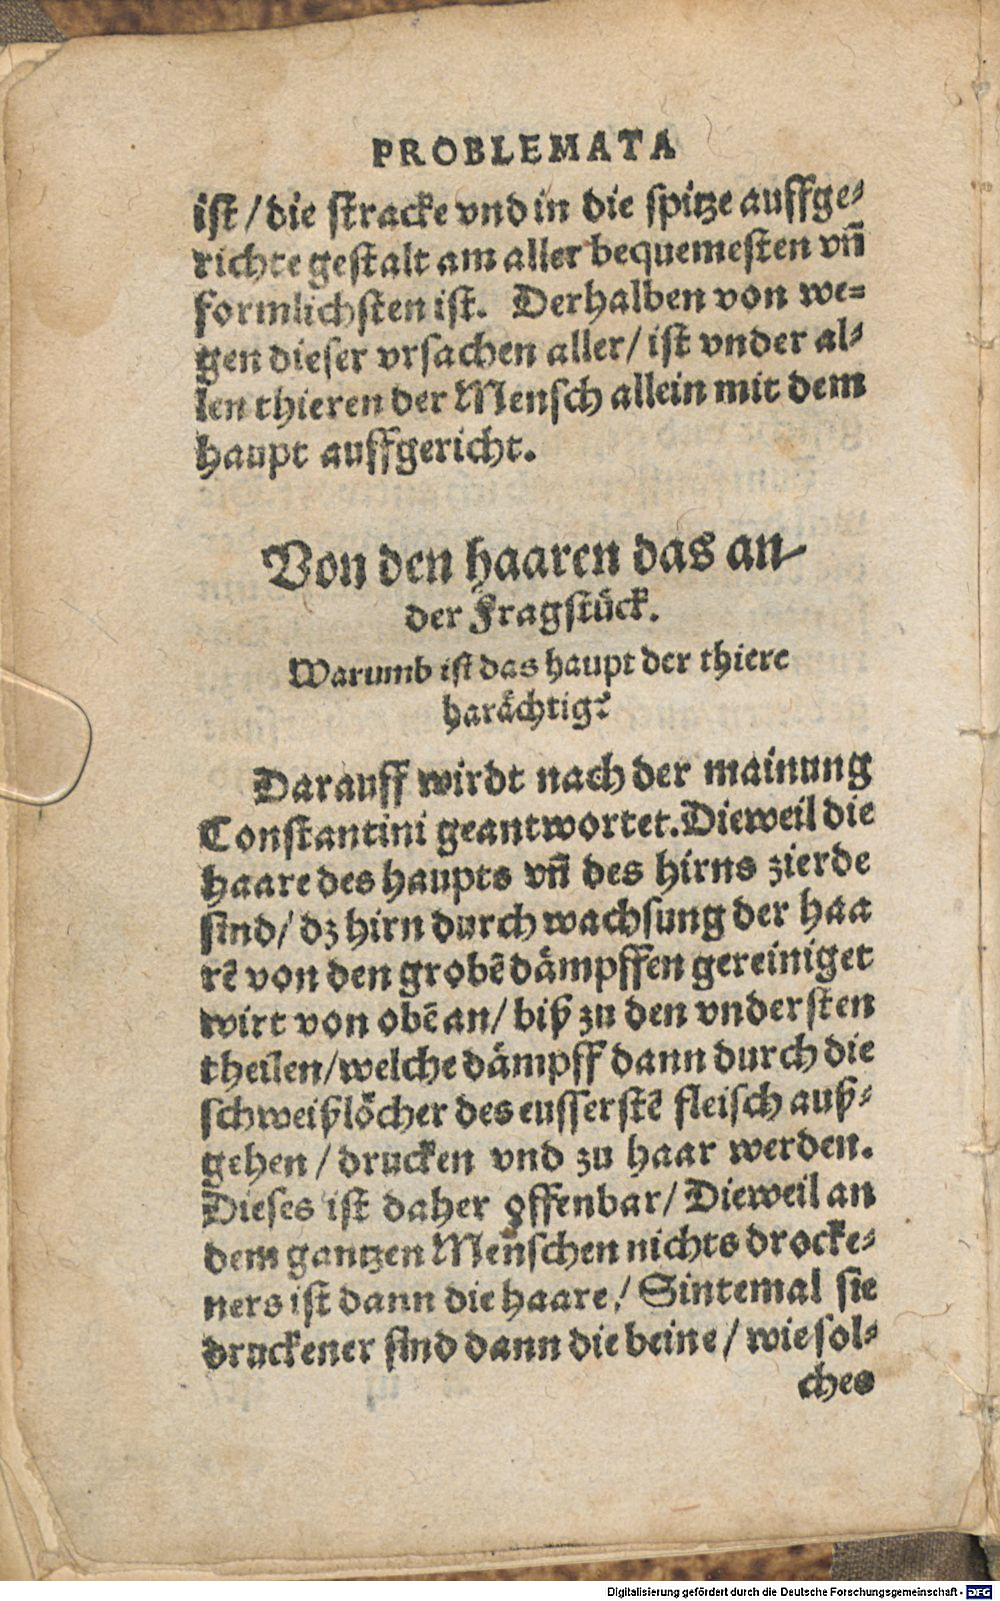 PROBLEMATA
ist / die stracke vnd in die spitze auffge⸗
richte gestalt am aller bequemesten vñ
formlichsten ist. Derhalben von we⸗
gen dieser vrsachen aller / ist vnder al⸗
len thieren der Mensch allein mit dem
haupt auffgericht.
Von den haaren das an⸗
der Fragstück.
Warumb ist das haupt der thiere
harächtig?
Darauff wirdt nach der mainung
Constantini geantwortet. Dieweil die
haare des haupts vñ des hirns zierde
sind / dz hirn durch wachsung der haa
rē von den grobē dämpffen gereiniget
wirt von obē an / biß zu den vndersten
theilen / welche dämpff dann durch die
schweißlöcher des eusserstē fleisch auß⸗
gehen / drucken vnd zu haar werden.
Dieses ist daher offenbar / Dieweil an
dem gantzen Menschen nichts drocke⸗
ners ist dann die haare / Sintemal sie
druckener sind dann die beine / wie sol⸗
ches
Digitalisierung gefördert durch die Deutsche Forschungsgemeinschaft - DFG